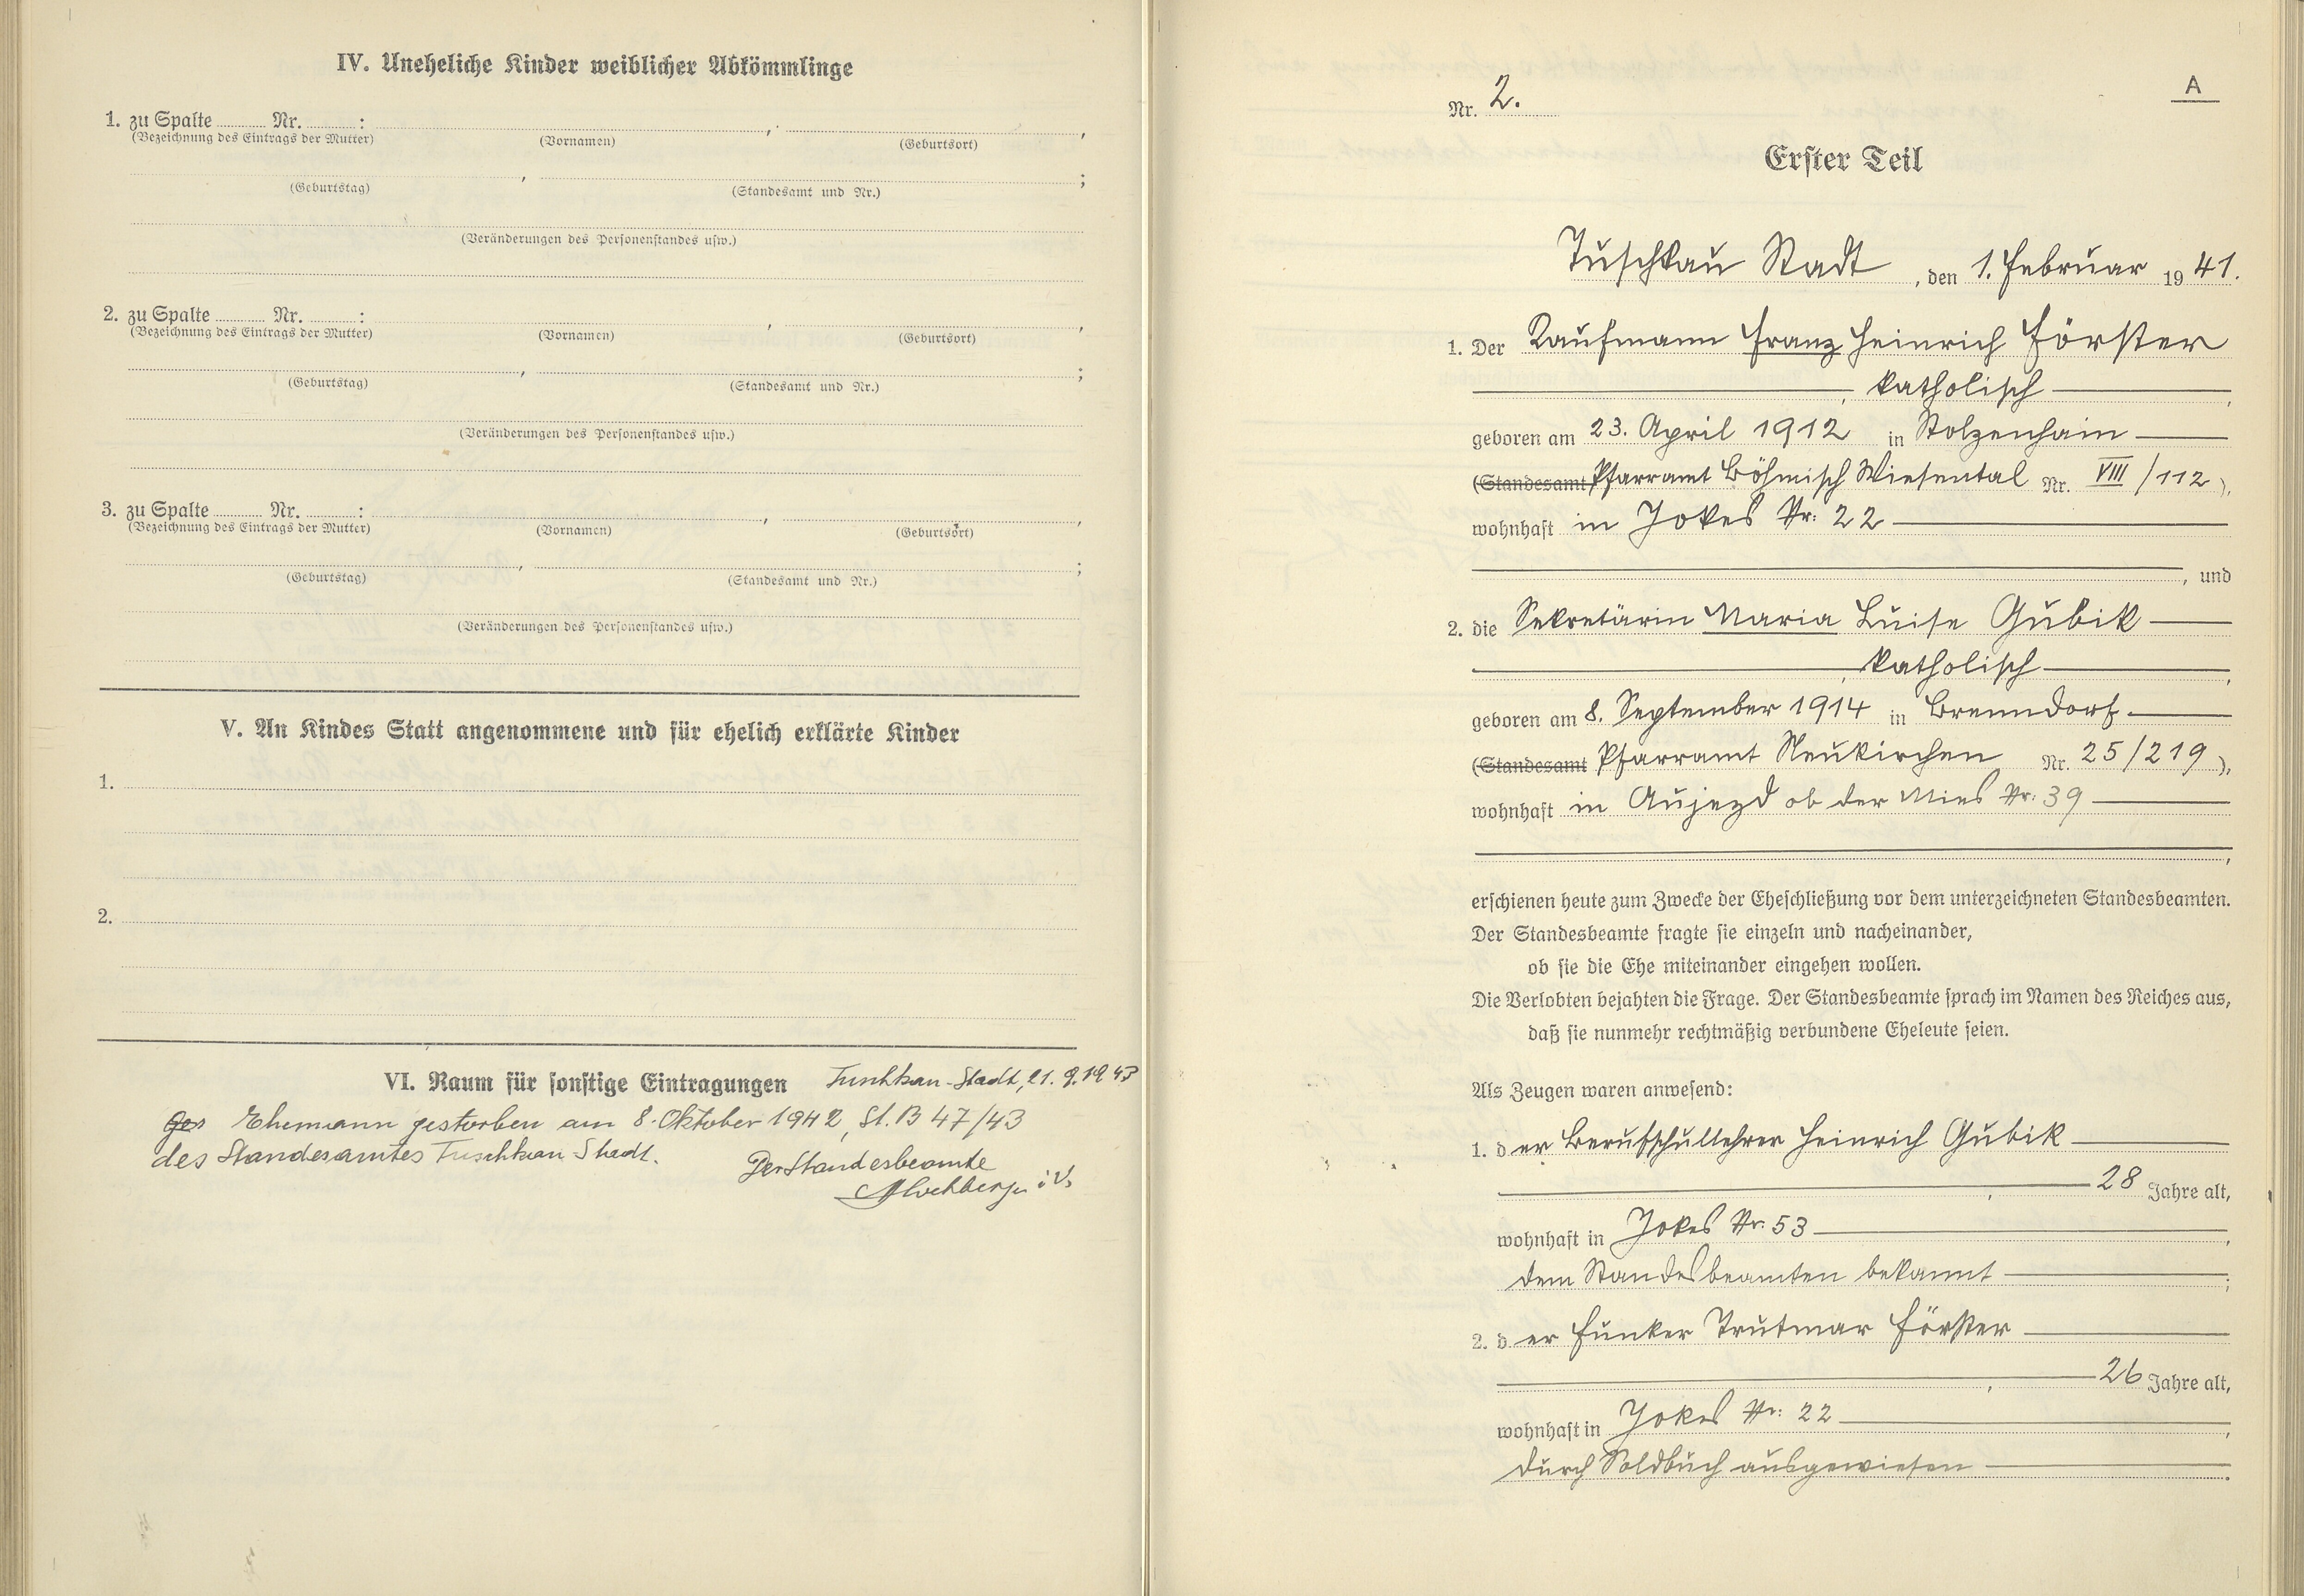 IV. Uneheliche Kinder weiblicher Abkömmlinge
1. zu Spalte Nr. : , ,
(Bezeichnung des Eintrags der Mutter) (Vornamen) (Geburtsort)
, ;
(Geburtstag) (Standesamt und Nr.)
(Veränderungen des Personenstandes usw.)
2. zu Spalte Nr. : , ,
(Bezeichnung des Eintrags der Mutter) (Vornamen) (Geburtsort)
, ;
(Geburtstag) (Standesamt und Nr.)
(Veränderungen des Personenstandes usw.)
3. zu Spalte Nr. : , ,
(Bezeichnung des Eintrags der Mutter) (Vornamen) (Geburtsort)
, ;
(Geburtstag) (Standesamt und Nr.)
(Veränderungen des Personenstandes usw.)
V. An Kindes Statt angenommene und für ehelich erklärte Kinder
1.
2.
VI. Raum für sonstige Eintragungen Tuschkau-Stadt, 21. 9. 1943
Ehemann gestorben am 8. Oktober 1942, St. B 47/43
des Standesamtes Tuschkau-Stadt.
Der Standesbeamte
i.V.
A
Nr. 2.
Erster Teil
Tuschkau Stadt, den 1. Februar 1941.
1. Der Kaufmann Franz Heinrich Förster
, katholisch ,
geboren am 23. April 1912 in Stolzenhain
(Standesamt Pfarramt Böhmisch Wiesental Nr. VIII/112),
wohnhaft in Jokes Nr. 22
, und
2. die Sekretärin Maria Luise Gubik
, katholisch ,
geboren am 8. September 1914 in Brenndorf
(Standesamt Pfarramt Neukirchen Nr. 25/219),
wohnhaft in Aujezd ob der Mies Nr. 39
,
erschienen heute zum Zwecke der Eheschließung vor dem unterzeichneten Standesbeamten.
Der Standesbeamte fragte sie einzeln und nacheinander,
ob sie die Ehe miteinander eingehen wollen.
Die Verlobten bejahten die Frage. Der Standesbeamte sprach im Namen des Reiches aus,
daß sie nunmehr rechtmäßig verbundene Eheleute seien.
Als Zeugen waren anwesend:
1. der Berufschullehrer Heinrich Gubik
, 28 Jahre alt,
wohnhaft in Jokes Nr. 53 ,
dem Standesbeamten bekannt ;
2. der Funker Trutmar Förster
, 26 Jahre alt,
wohnhaft in Jokes Nr. 22 ,
durch Soldbuch ausgewiesen .